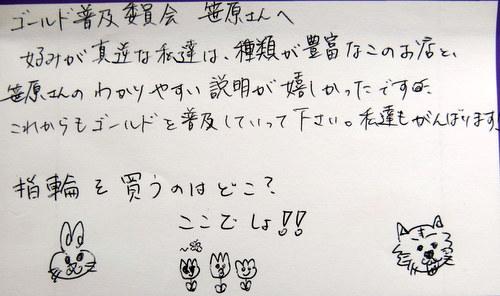 ゴールド普及委員会 笹原さんへ
好みが真逆な私達は、種類が豊富なこのお店と、
笹原さんのわかりやすい説明が嬉しかったですm(_ _)m
これからもゴールドを普及していって下さい。私達もがんばります!
指輪を買うのはどこ?
ここでしょ!!